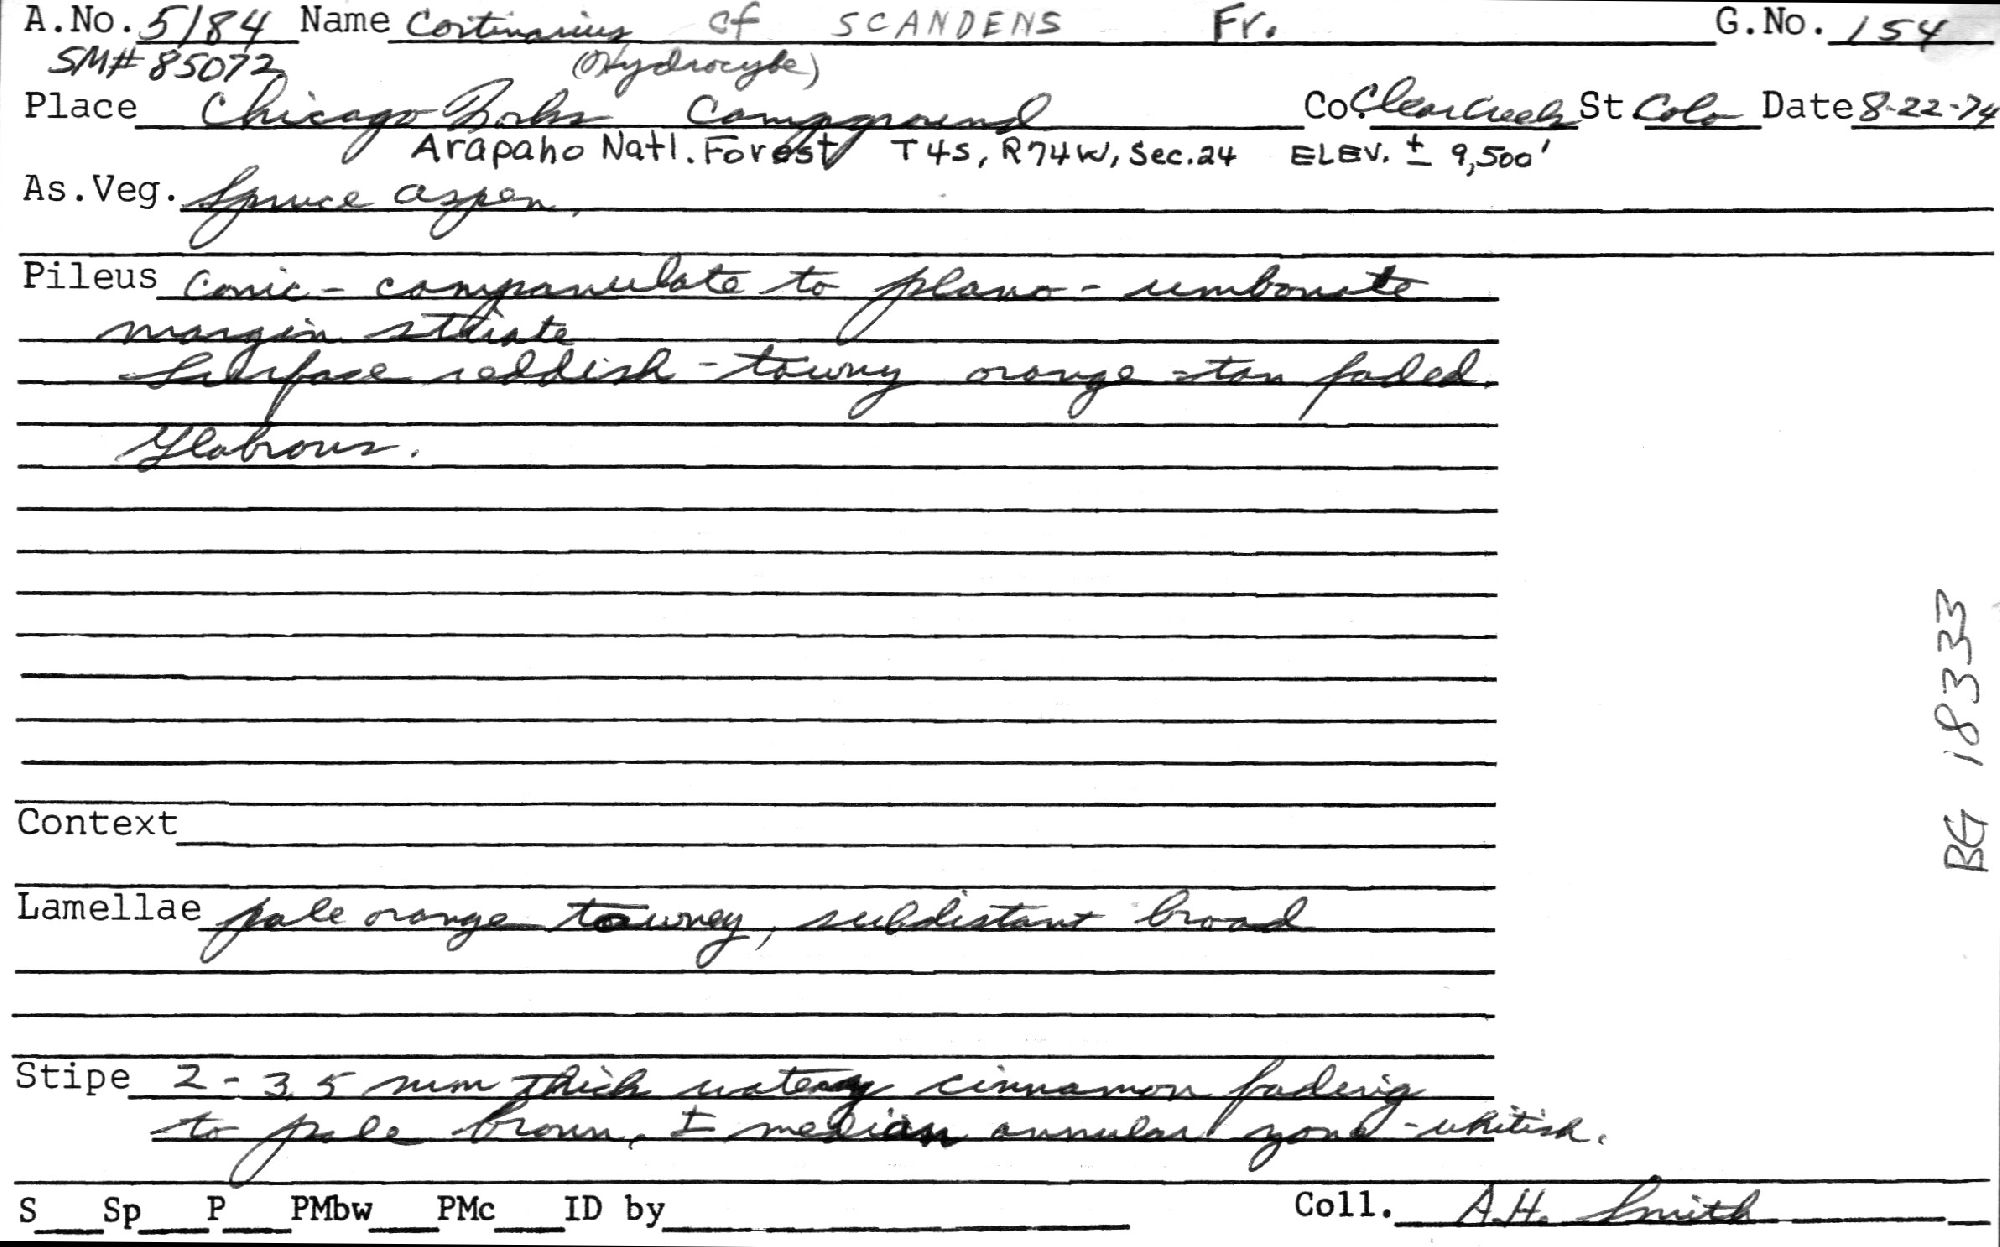 A.No. 5184 Name Cortinarius cf SCANDENS Fr. G.No. 154
SM# 85072 (Hydrocybe)
Place Chicago Forks Campground Co. Clear Creek St Colo Date 8-22-74
Arapaho Natl. Forest T4S, R74W, Sec. 24 ELEV. ± 9,500'
As.Veg. Spruce aspen.
Pileus Conic - campanulate to plano - umbonate
margin striate
Surface reddish - tawny orange - tan faded.
Glabrous.
Context
Lamellae pale orange tawney, subdistant broad
Stipe 2 - 3.5 mm thick watery cinnamon fading
to pale brown, ± median annular zone - whitish.
S Sp P PMbw PMc ID by Coll. A.H. Smith
BG 18333